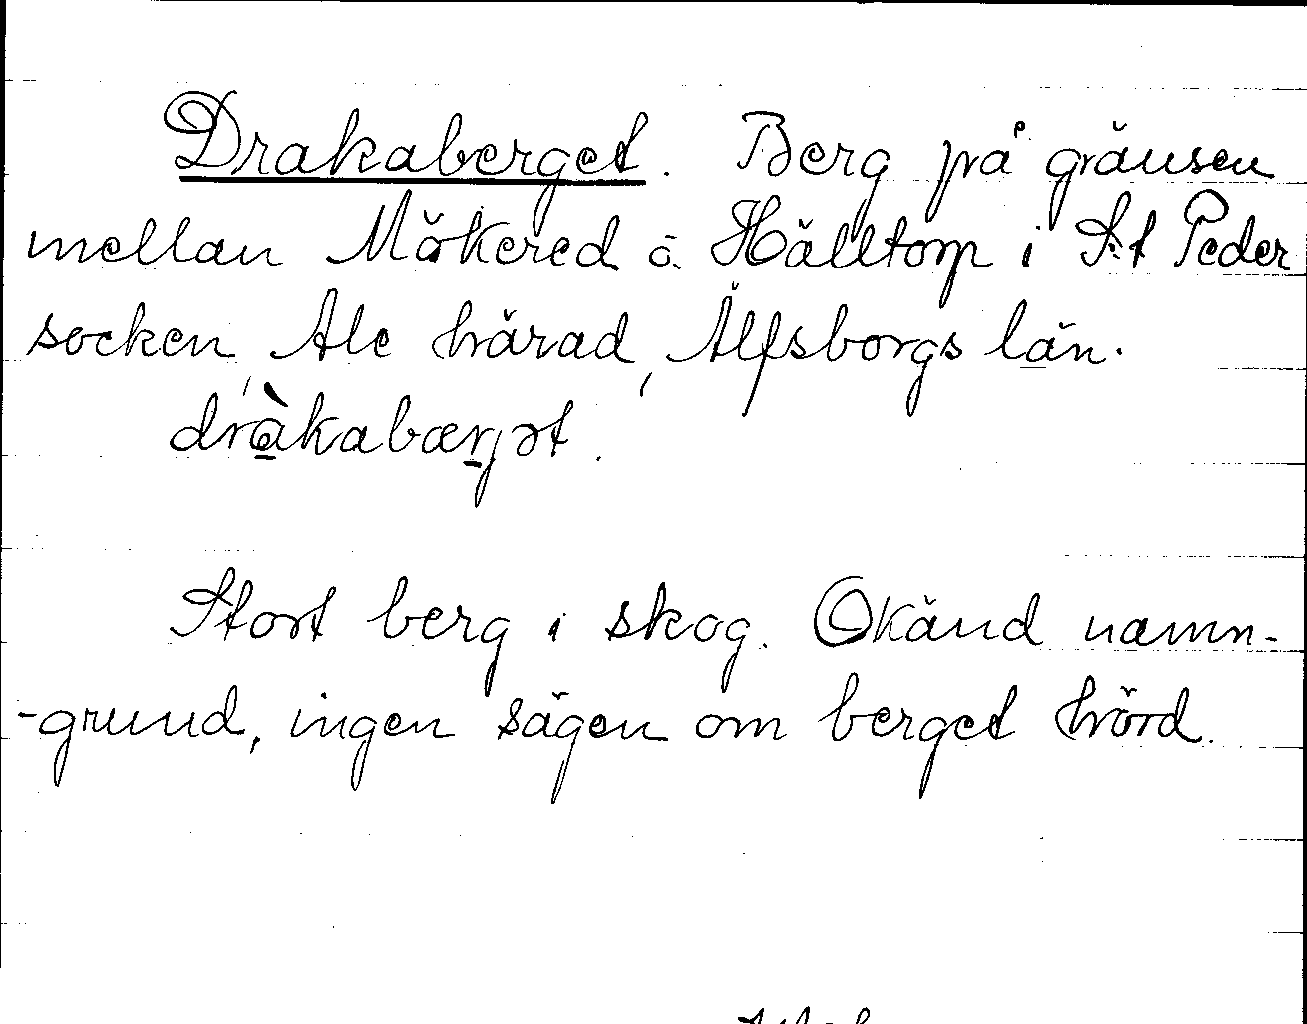 Drakaberget. Berg på gränsen
mellan Mökered å Hälltorp i S:t Peder
socken, Ale härad, Älfsborgs län.
dràkabærjət.
Stort berg i skog. Okänd namn-
-grund, ingen sägen om berget hörd.